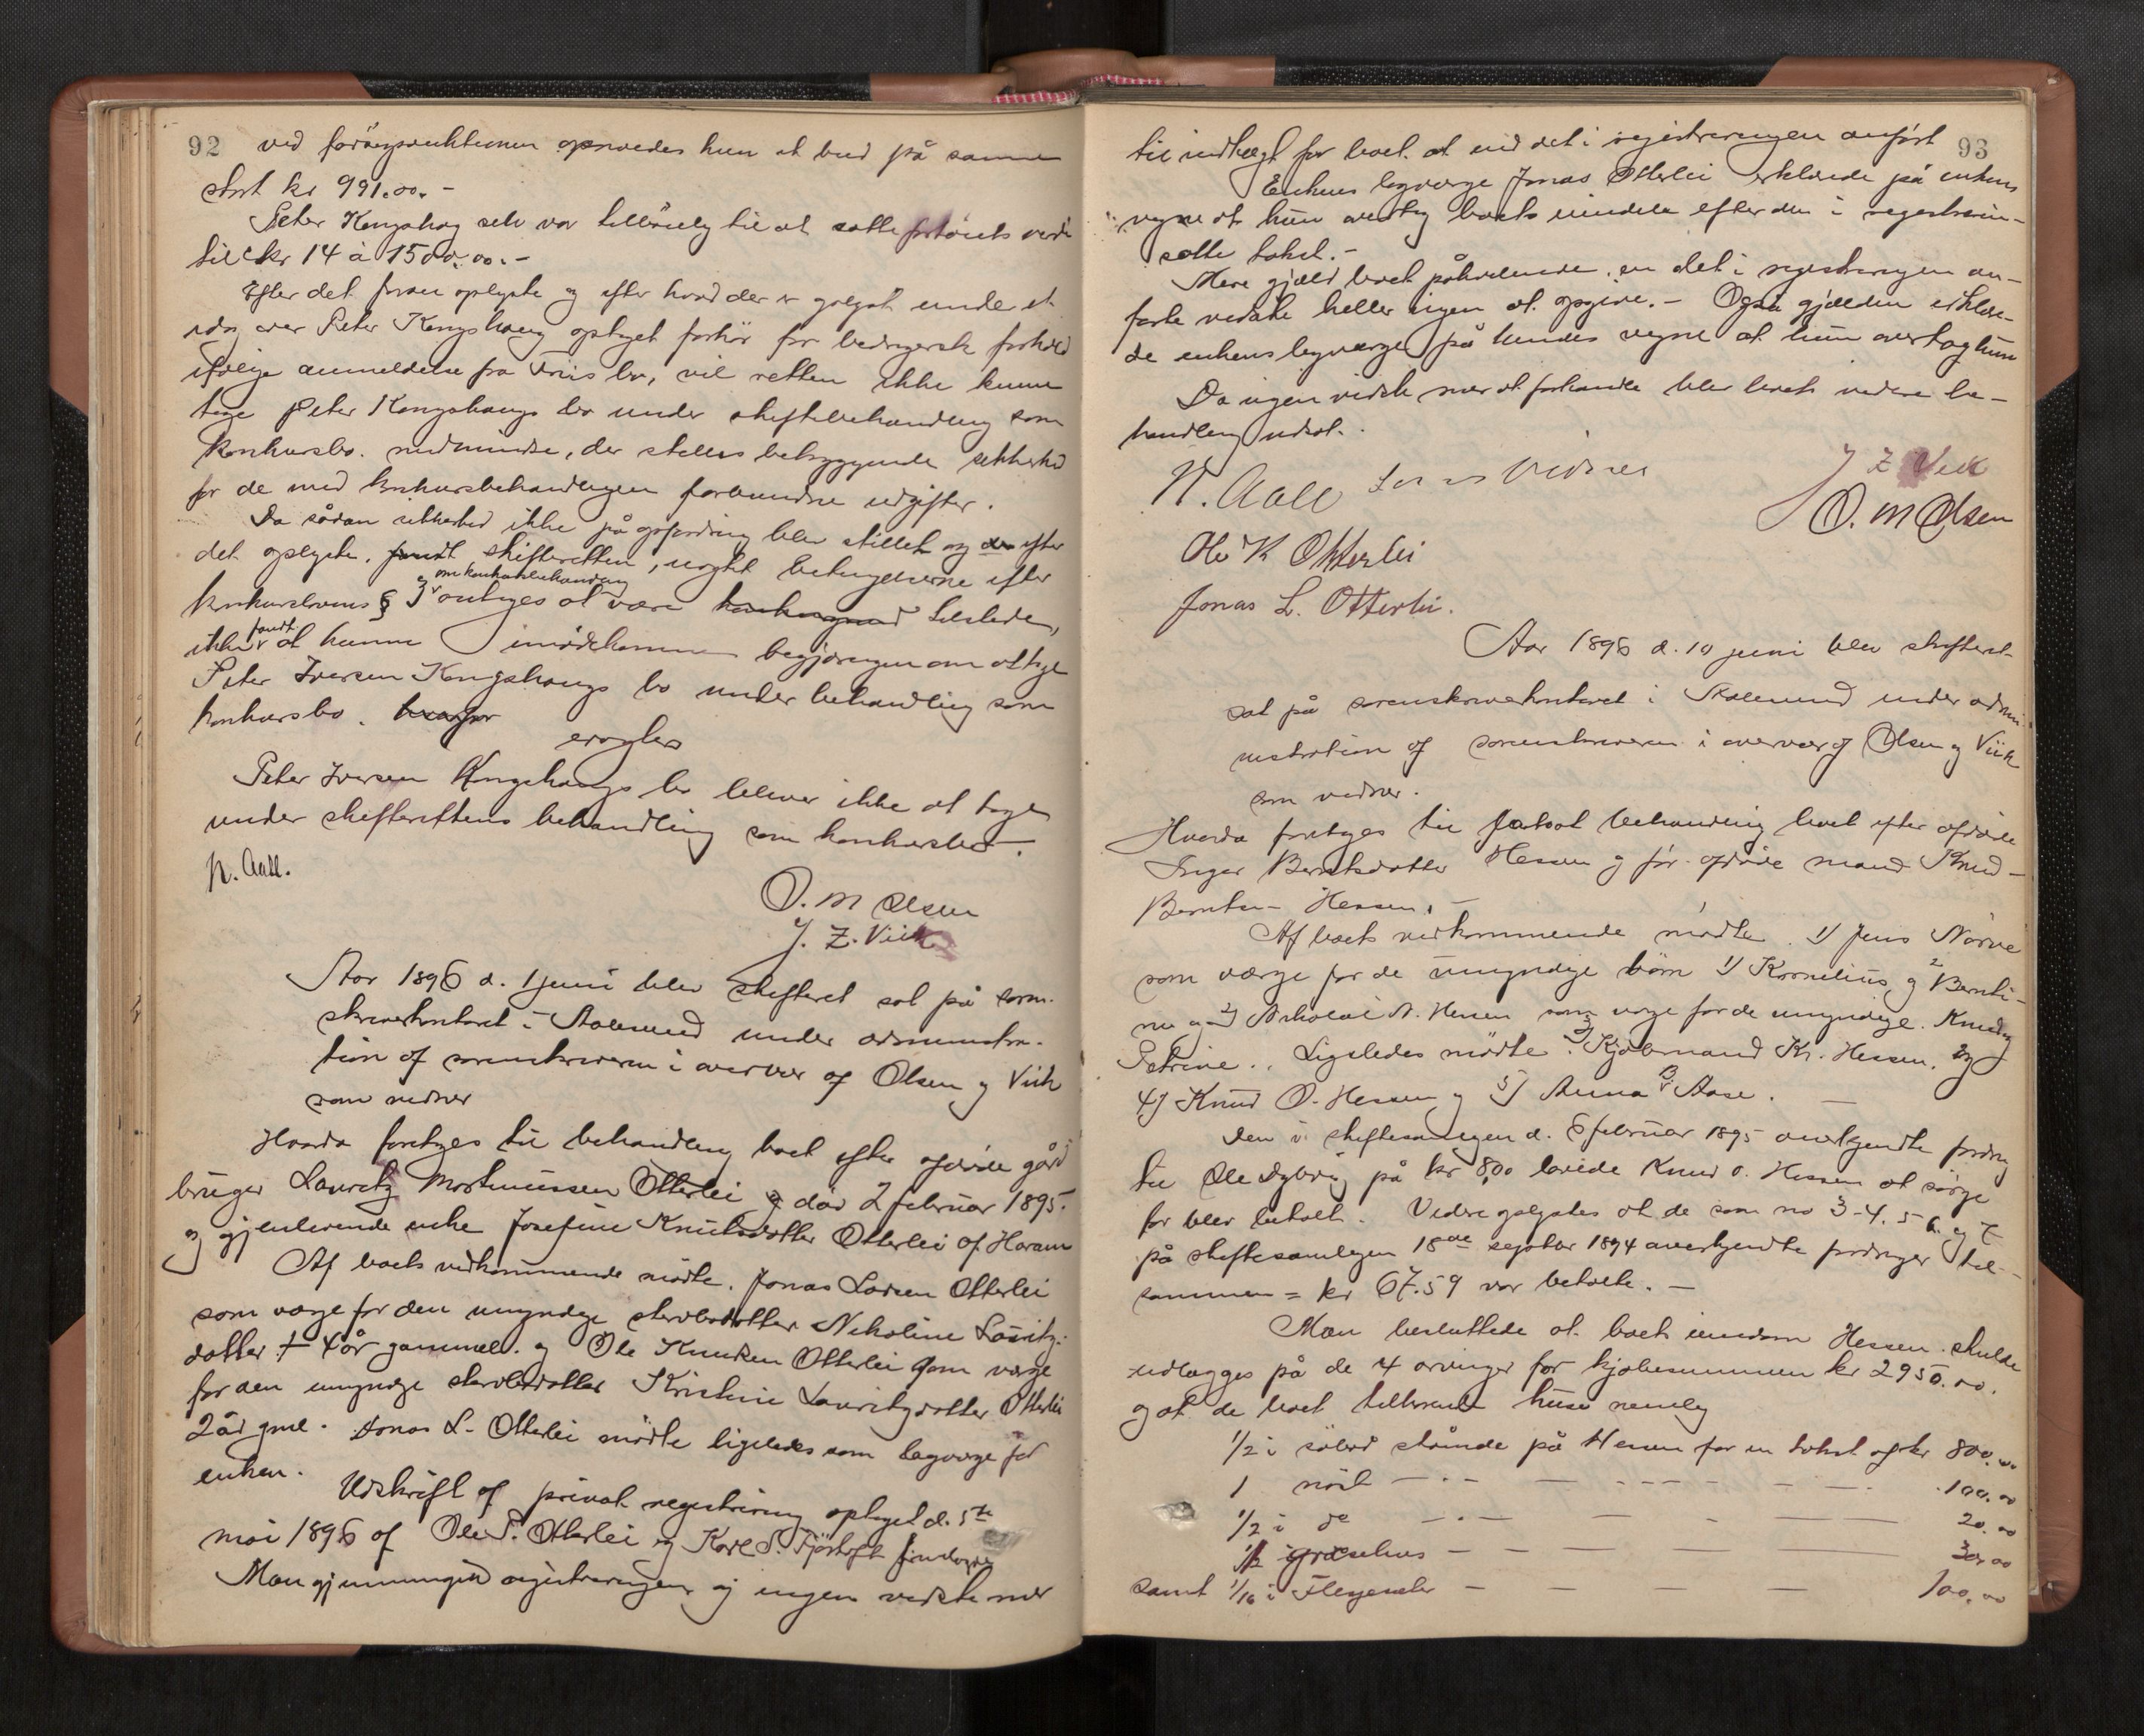 92
ved forøgsauktionen opnåedes kun et bud på samme
stort kr 991.00.-
Peter Kongshaug selv var tilbøielig til at sætte fartøiets værdi
til kr 14 à 1500.00.-
Efter det foran oplyste og efter hvad der er oplyst under et
idag over Peter Kongshaug optaget forhør for bedragersk forhold
ifølge anmeldelse fra Friis bo, vil retten ikke kunne
tage Peter Kongshaugs bo under skiftebehandling som
konkursbo. medmindre, der stilles betryggende sikkerhed
for de med konkursbehandlingen forbundne udgifter.
Da sådan sikkerhed ikke på opfordring blev stillet og efter
det oplyste, fandt skifteretten, uagtet betingelserne efter
konkurslovens § 3 om konkursbehandling antages at være tilstede,
ikke fandt at kunne imødekomme begjæringen om at tage
Peter Iversen Kongshaugs bo under behandling som
konkursbo.
eragtes
Peter Iversen Kongshaugs bo bliver ikke at tage
under skifterettens behandling som konkursbo.
N. Aall.
O. M Olsen
J. Z. Viik
Aar 1896 d. 1 juni blev skifteret sat på soren-
skriverkontoret i Aalesund under administra-
tion af sorenskriveren i overvær af Olsen og Viik
som vidner
Hvorda foretages til behandling boet efter afdøde gård
bruger Lauritz Martinussen Otterlei død 2 februar 1895.
og gjenlevende enke Josefine Knutsdatter Otterlei af Haram
Af boets vedkommende mødte. Jonas Larsen Otterlei
som værge for den umyndige sterbodatter Nikoline Lauritz-
datter 4 år gammel. og Ole Knutsen Otterlei som værge
for den umyndige sterbodatter Kristine Lauritzdatter Otterlei
2 år gml. Jonas L. Otterlei mødte ligeledes som lagværge for
enken.
Udskrift af privat registrering optaget d. 5te
mai 1896 af Ole P. Otterlei og Karl S. Fjørtoft fremlagdes
Man gjennemgik registreringen og ingen vidste mer
93
til indtægt for boet at end det i registreringen anført
Enkens lagværge Jonas Otterlei erklærede på enkens
vegne at hun overtog boets eiendele efter den i registrerin-
satte takst.-
Mere gjæld boet påhvilende, en det i registreringen an-
førte vidste heller ingen at opgive.- Også gjælden erklære-
de enkens lagværge på hendes vegne at hun overtog hun
Da ingen vidste mer at forhandle blev boets videre be-
handling udsat.
N. Aall
J Z Viik
O. M Olsen
Ole K Otterlei
Jonas L. Otterlei.
Aar 1896 d. 10 juni blev skifteret
sat på sorenskriverkontoret i Aalesund under admi-
nistration af sorenskriveren i overvær af Olsen og Viik
som vidner.
Hvorda foretages til fortsat behandling boet efter afdøde
Inger Berntsdatter Hessen og før afdøde mand Knud
Berntsen Hessen.-
Af boets vedkommende mødte. 1) Jens Nørve
som værge for de umyndige børn 1) Kornelius, og 2 Bernti-
ne og 2) Nikolai A. Hessen som værge for de umyndige. Knud og
Petrine.. Ligeledes mødte 3) Kjøbmand Kr. Hessen, og
4) Knud O. Hessen og 5) Anna B Aase.
Den i skiftesamlingen d. 6 februar 1895 anerkjendte fordring
til Ole Dybvig på kr 8,00 lovede Knud O. Hessen at sørge
for blev betalt. Videre oplystes at de som no 3-4. 5 6. og 7
på skiftesamlingen 18de septbr 1894 anerkjendte fordringer til-
sammen = kr 67.59 var betalte.-
Man besluttede at boets eiendom Hessen. skulde
udlægges på de 4 arvinger for kjøbesummen kr 2950.00.
og at de boet tilhørende huse nemlig
1/2 i søbod stående på Hessen for en takst af kr 800.00
1 nøst - . - — - - - - — . 100.00
1/2 i do — . — — — 20.00
1/2 i — — — — 30.00
samt 1/16 i — — — — 100.00